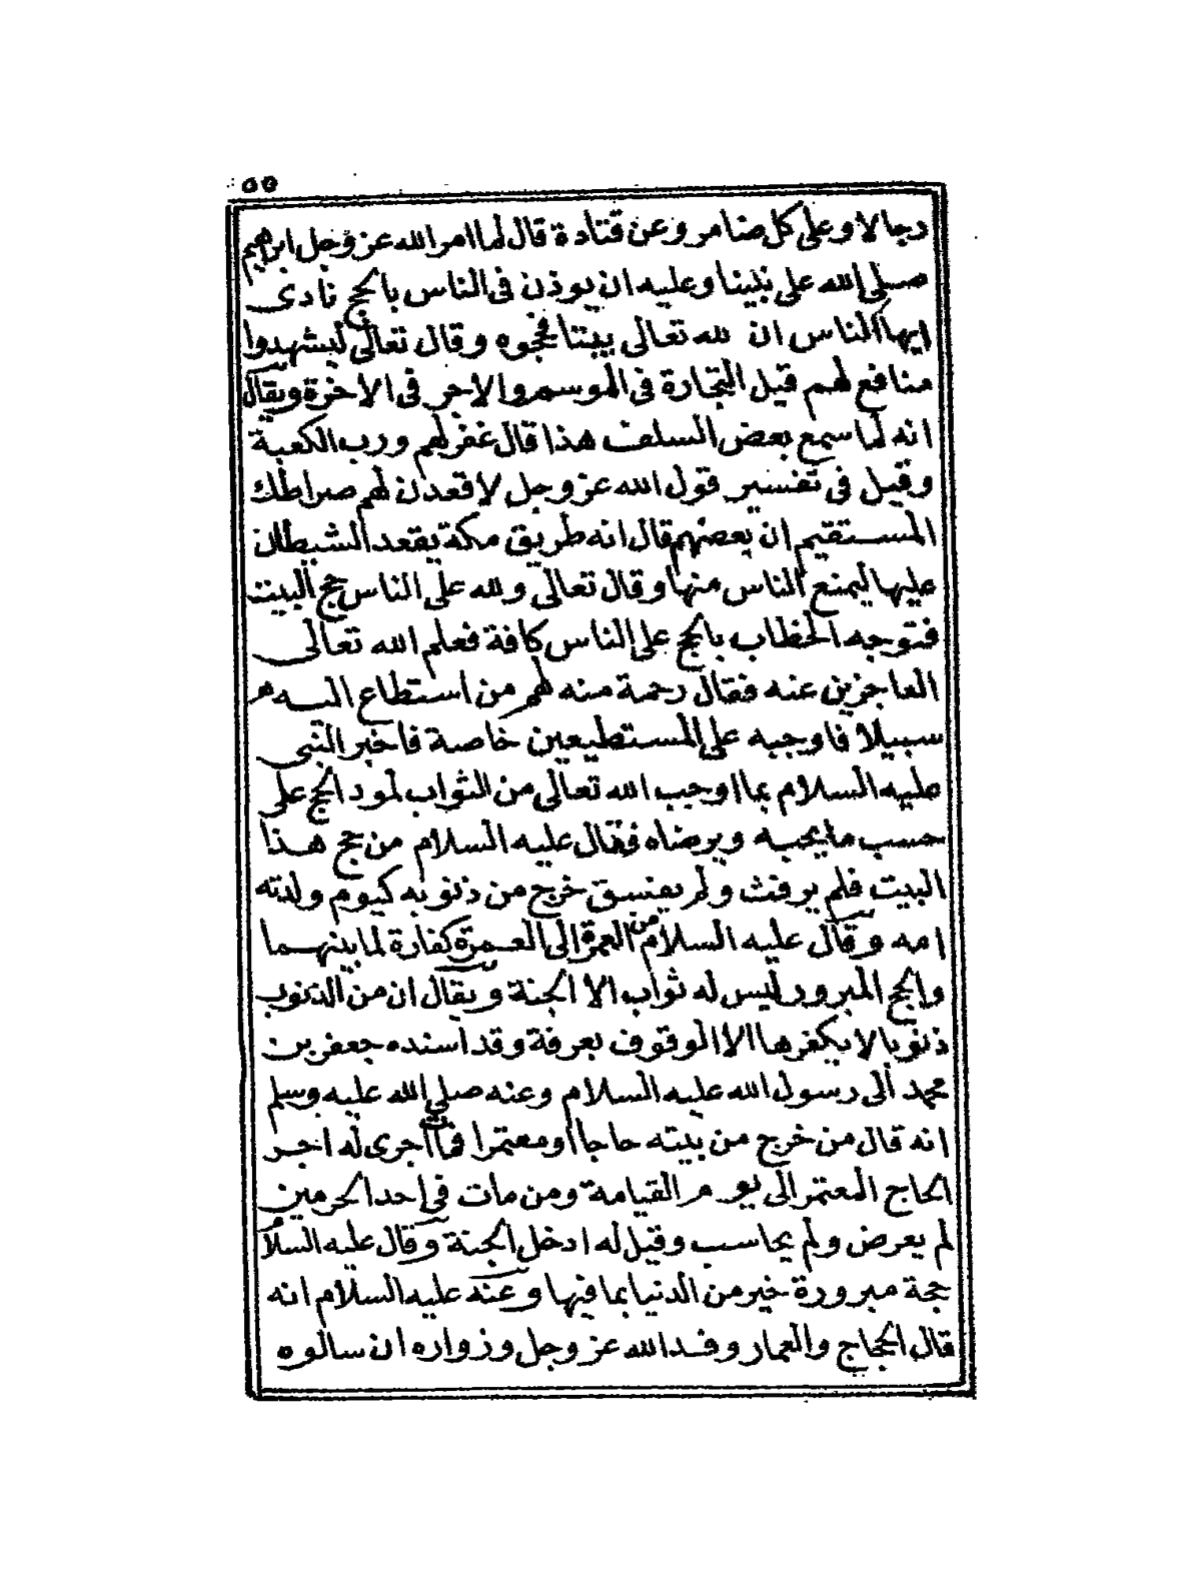 ٥٥
رجالا وعلى كل ضامر وعن قتادة قال لما امر الله عز وجل ابراهيم
صلى الله على نبينا وعليه ان يوذن فى الناس بالحج نادى
ايها الناس ان لله تعالى بيتا فحجوه وقال تعالى ليشهدوا
منافع لهم قيل التجارة فى الموسم والاجر فى الاخرة ويقال
انه لما سمع بعض السلف هذا قال غفر لهم ورب الكعبة
وقيل فى تفسير قول الله عز وجل لاقعدن لهم صراطك
المستقيم ان بعضهم قال انه طريق مكة يقعد الشيطان
عليها ليمنع الناس منها وقال تعالى ولله على الناس حج البيت
فتوجه الخطاب بالحج على الناس كافة فعلم الله تعالى
العاجزين عنه فقال رحمة منه لهم من استطاع اليه
سبيلا فاوجبه على المستطيعين خاصة فاخبر النبى
عليه السلام بما اوجب الله تعالى من الثواب لمود الحج على
حسب ما يحبه ويرضاه فقال عليه السلام من حج هذا
البيت فلم يرفث ولم يفسق خرج من ذنوبه كيوم ولدته
امه وقال عليه السلام من العمرة الى العمرة كفارة لما بينهما
والحج المبرور ليس له ثواب الا الجنة ويقال ان من الذنوب
ذنوبا لا يكفرها الا الوقوف بعرفة وقد اسنده جعفر بن
محمد الى رسول الله عليه السلام وعنه صلى الله عليه وسلم
انه قال من خرج من بيته حاجا او معتمرا فمات اجرى له اجر
الحاج المعتمر الى يوم القيامة ومن مات فى احد الحرمين
لم يعرض ولم يحاسب وقيل له ادخل الجنة وقال عليه السلام
حجة مبرورة خير من الدنيا بما فيها وعنه عليه السلام انه
قال الحجاج والعمار وفد الله عز وجل وزواره ان سالوه